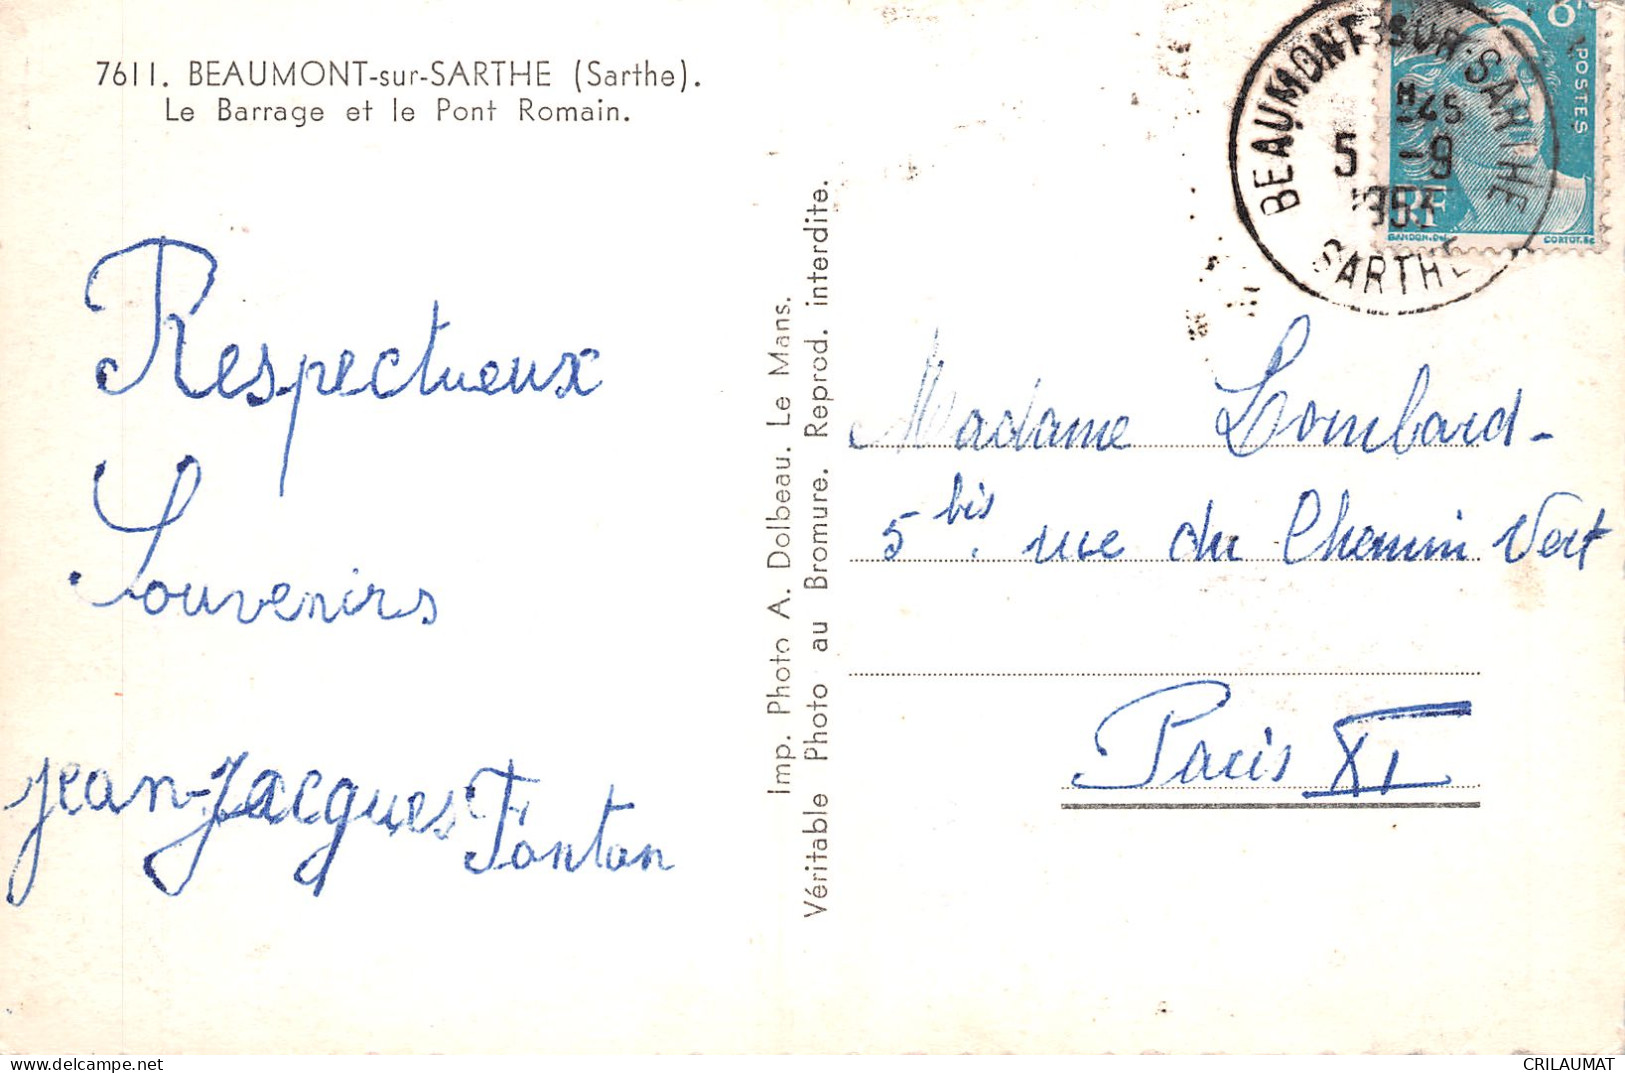 7611. BEAUMONT-sur-SARTHE (Sarthe).
Le Barrage et le Pont Romain.
Respectueux
Souvenirs
Jean-Jacques Fonton
Imp. Photo A. Dolbeau. Le Mans.
Véritable Photo au Bromure. Reprod. interdite.
BEAUMONT-SUR-SARTHE
5 -9
1953
SARTHE
POSTES
RF
GANDON.Del
CORTOT.Sc
Madame Lombard-
5 bis. rue du Chemin Vert
Paris XI
delcampe.net
CRILAUMAT